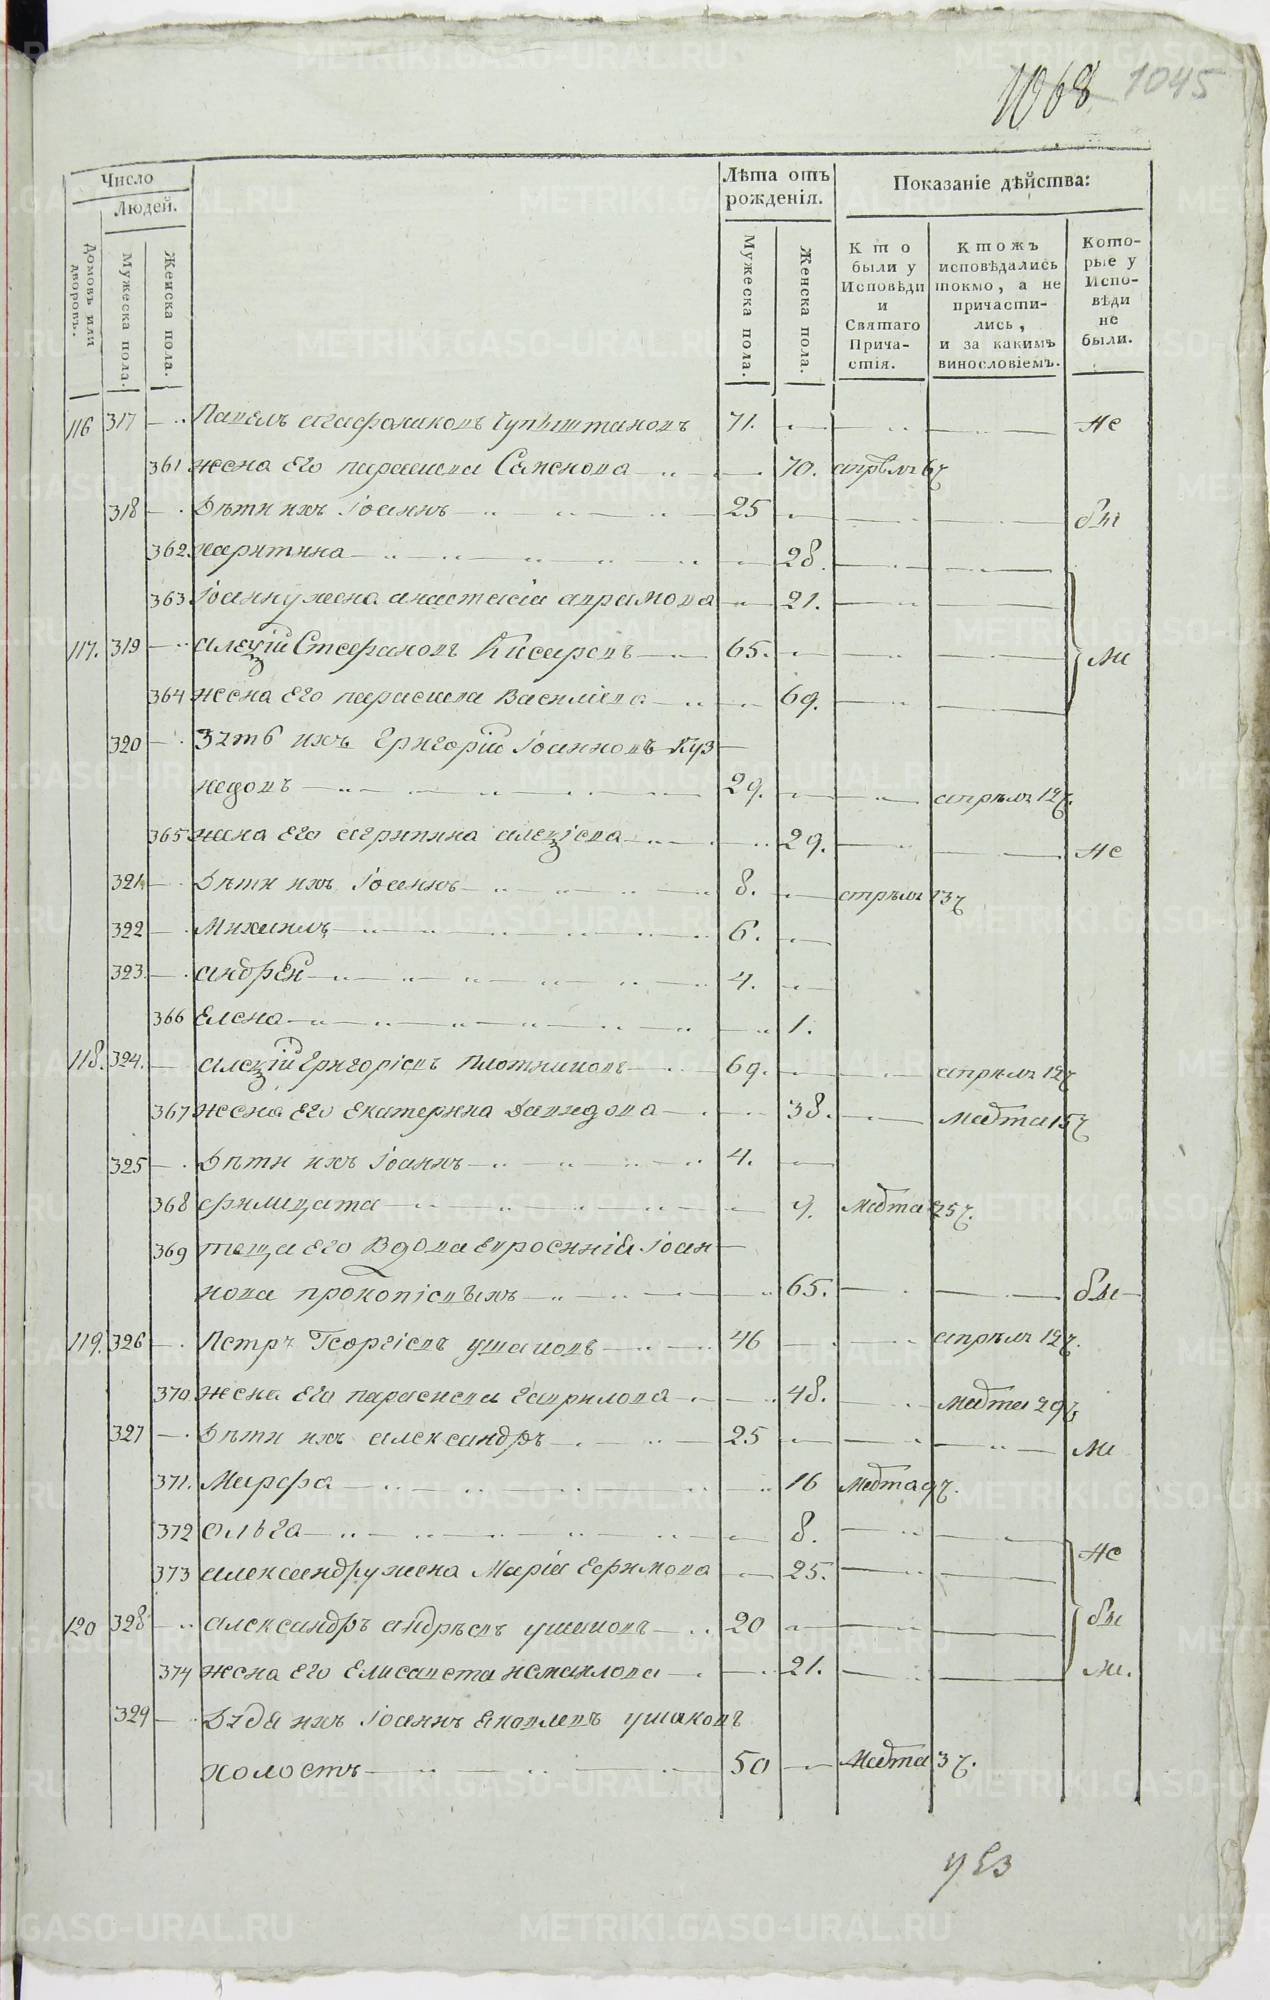 1068 1045
Число
Людей.
Домовъ или дворовъ.
Мужеска пола.
Женска пола.
Лѣта отъ рожденія.
Мужеска пола.
Женска пола.
Показаніе дѣйства:
Кто были у Исповѣди и Святаго Прича- стія.
Ктожъ исповѣдались токмо, а не причасти- лись, и за какимъ винословіемъ.
Кото- рые у Испо- вѣди не были.
116 317 Павелъ Агафониковъ 71. не
361 жена Его параскева Семенова 70. 6
318 Дѣти ихъ Іоаннъ 25 бы
362 харитина 28.
363 Іоанну жена анастасіа аврамова 21.
117. 319 алеѯій Стефановъ Кисаревъ 65. ли
364 жена Его параскева Василіева 69.
320 Зять ихъ Григорій Іоанновъ Куз
нецовъ 29. апрѣля 12
365 жена Его агрипина алеѯіева 29. не
321 Дѣти ихъ Іоаннъ 8. 13
322 Михаилъ 6.
323 андрей 4.
366 Елена 1.
118. 324. алеѯій Григоріевъ Плотниковъ 69. апрѣля 12
367 жена Его Екатерина Давидова 38. Марта 15
325 Дѣти ихъ Іоаннъ 4.
368 филицата 9. Марта 25
369 теща Его Вдова Евросиніа Іоан
нова прокопіевыхъ 65. бы
119. 326 Петръ Георгіевъ ушаковъ 46 апрѣля 12
370 жена Его параскева Гаврилова 48. Марта 29
327 Дѣти ихъ александръ 25 ли
371. Марфа 16 Марта 9
372 ольга 8.
не
373 александру жена Маріа Ефимова 25.
120 328 александръ андрѣевъ ушаковъ 20 бы
374 жена Его Елисавета 21. ли.
329 Дядя ихъ Іоаннъ Яковлевъ ушаковъ
холостъ 50 Марта 3
METRIKI.GASO-URAL.RU